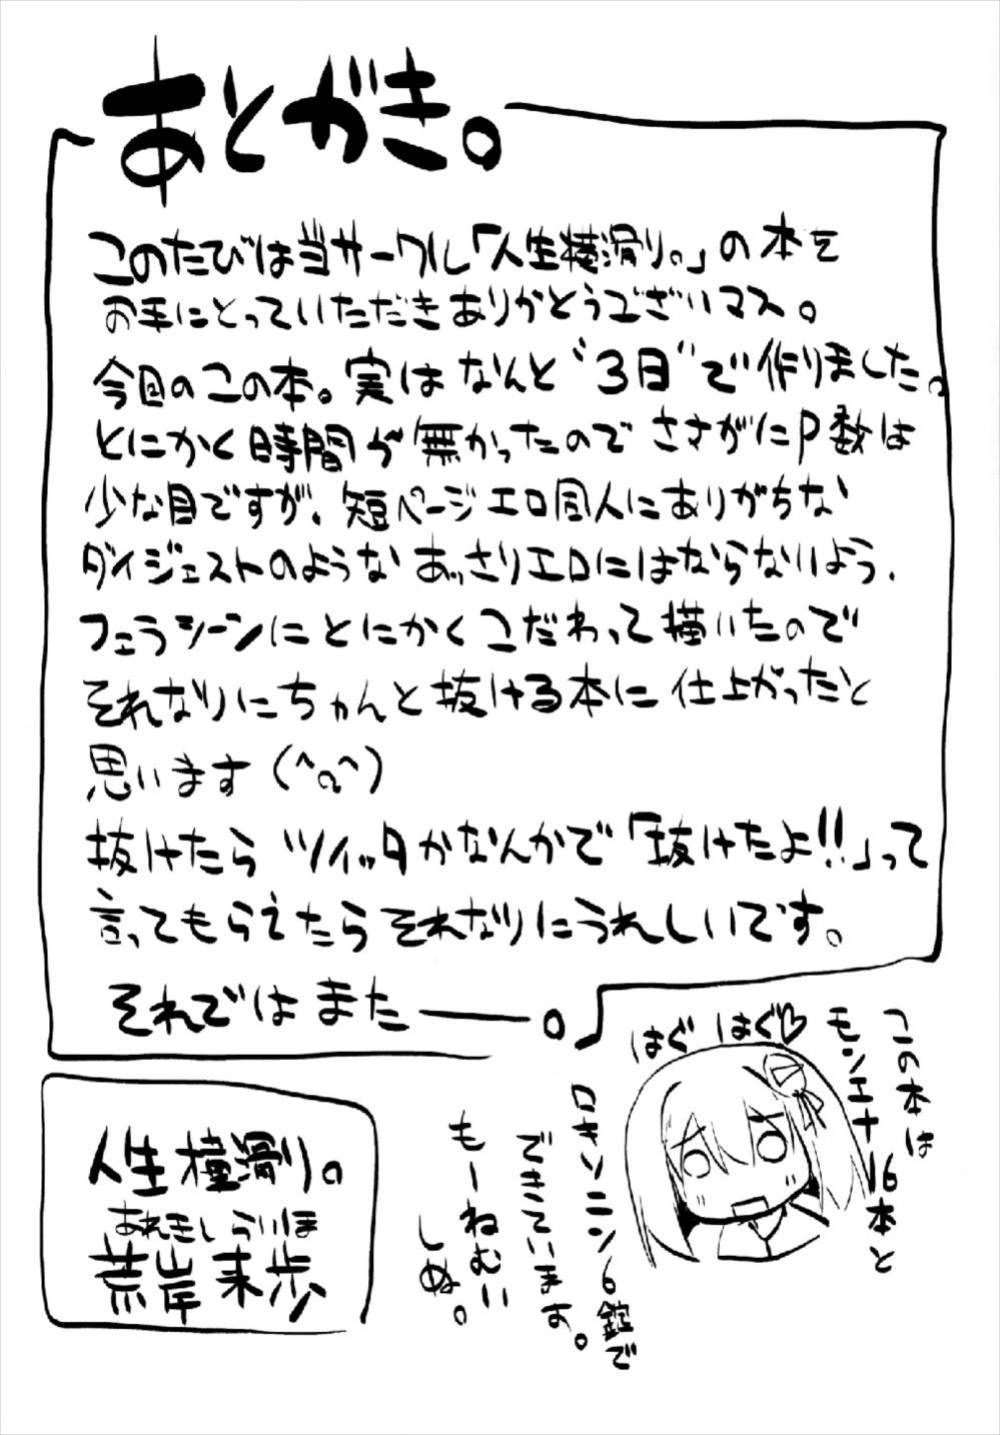 あとがき。
このたびは当サークル「人生横滑り。」の本を
お手にとっていただきありがとうございマス。
今回のこの本。実はなんと“3日”で作りました。
とにかく時間が無かったのでさすがにP数は
少な目ですが、短ページエロ同人にありがちな
ダイジェストのようなあっさりエロにはならないよう、
フェラシーンにとにかくこだわって描いたので
それなりにちゃんと抜ける本に仕上がったと
思います(^q^)
抜けたらツイッタかなんかで「抜けたよ!!」って
言ってもらえたらそれなりにうれしいです。
それではまた――。
はぐはぐ♡
この本は
モンエナ16本と
ロキソニン6錠で
できています。
もーねむい
しぬ。
人生横滑り。
あれきしらいほ
荒岸来歩